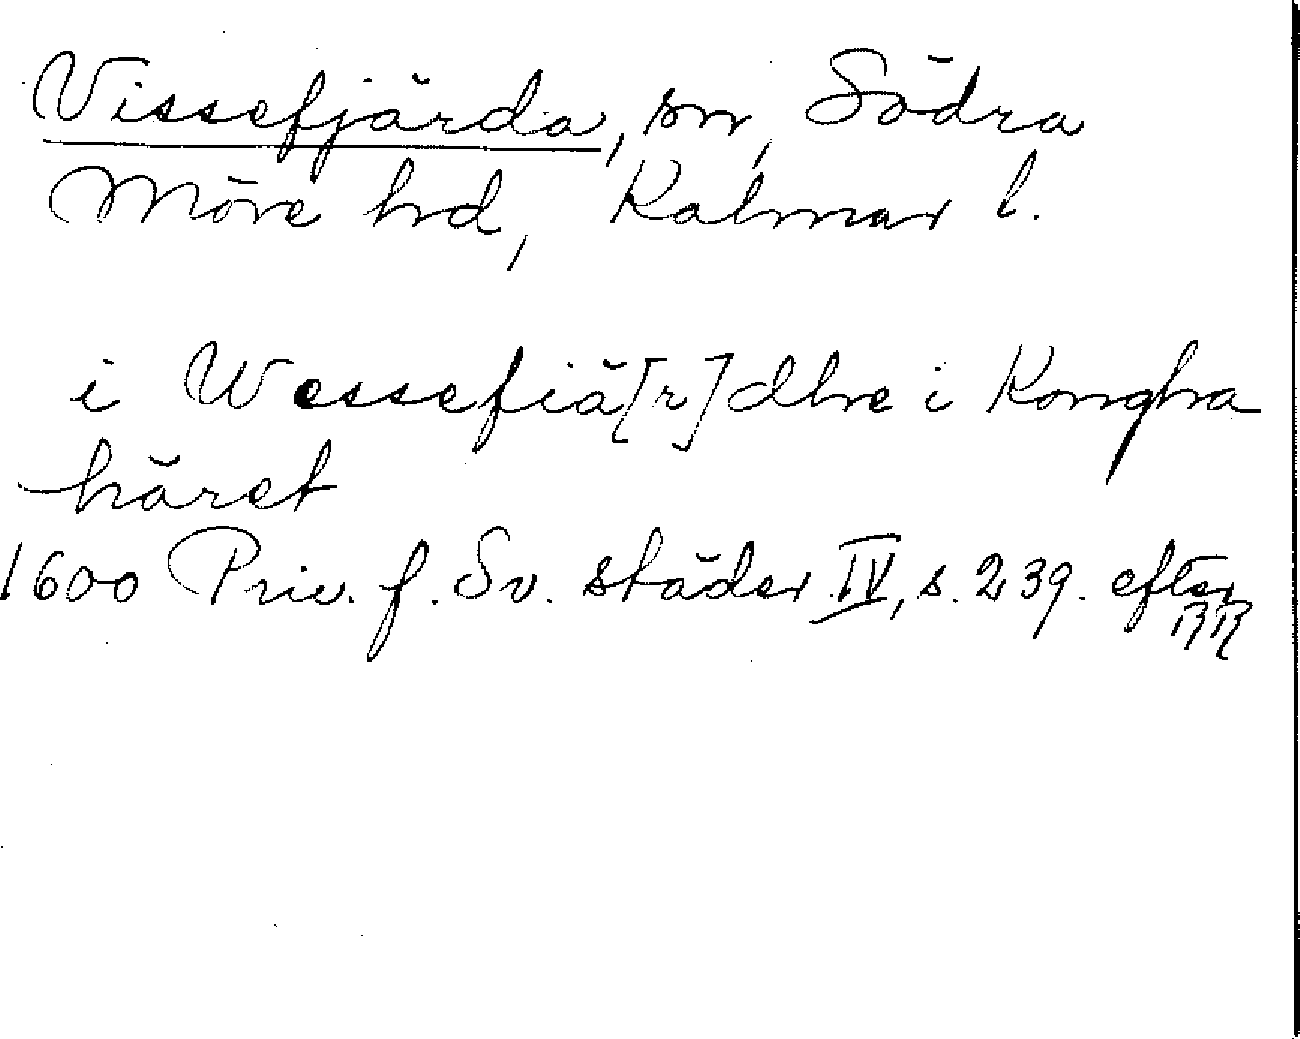 Vissefjärda, sn, Södra
Möre hrd, Kalmar l.
i Wessefiä[r]dhe i Kongha
häret
1600 Priv. f. Sv. städer IV, s. 239. efter
RR